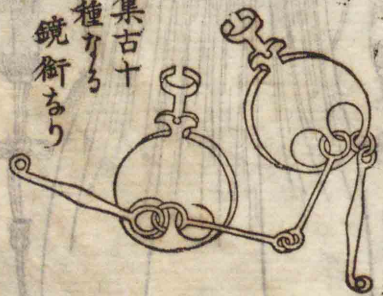 集古十
種なる
鏡衔なり